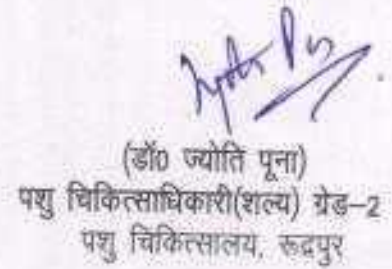 (डॉ0 ज्योति पूना)
पशु चिकित्साधिकारी(शल्य) ग्रेड-2
पशु चिकित्सालय, रूद्रपुर